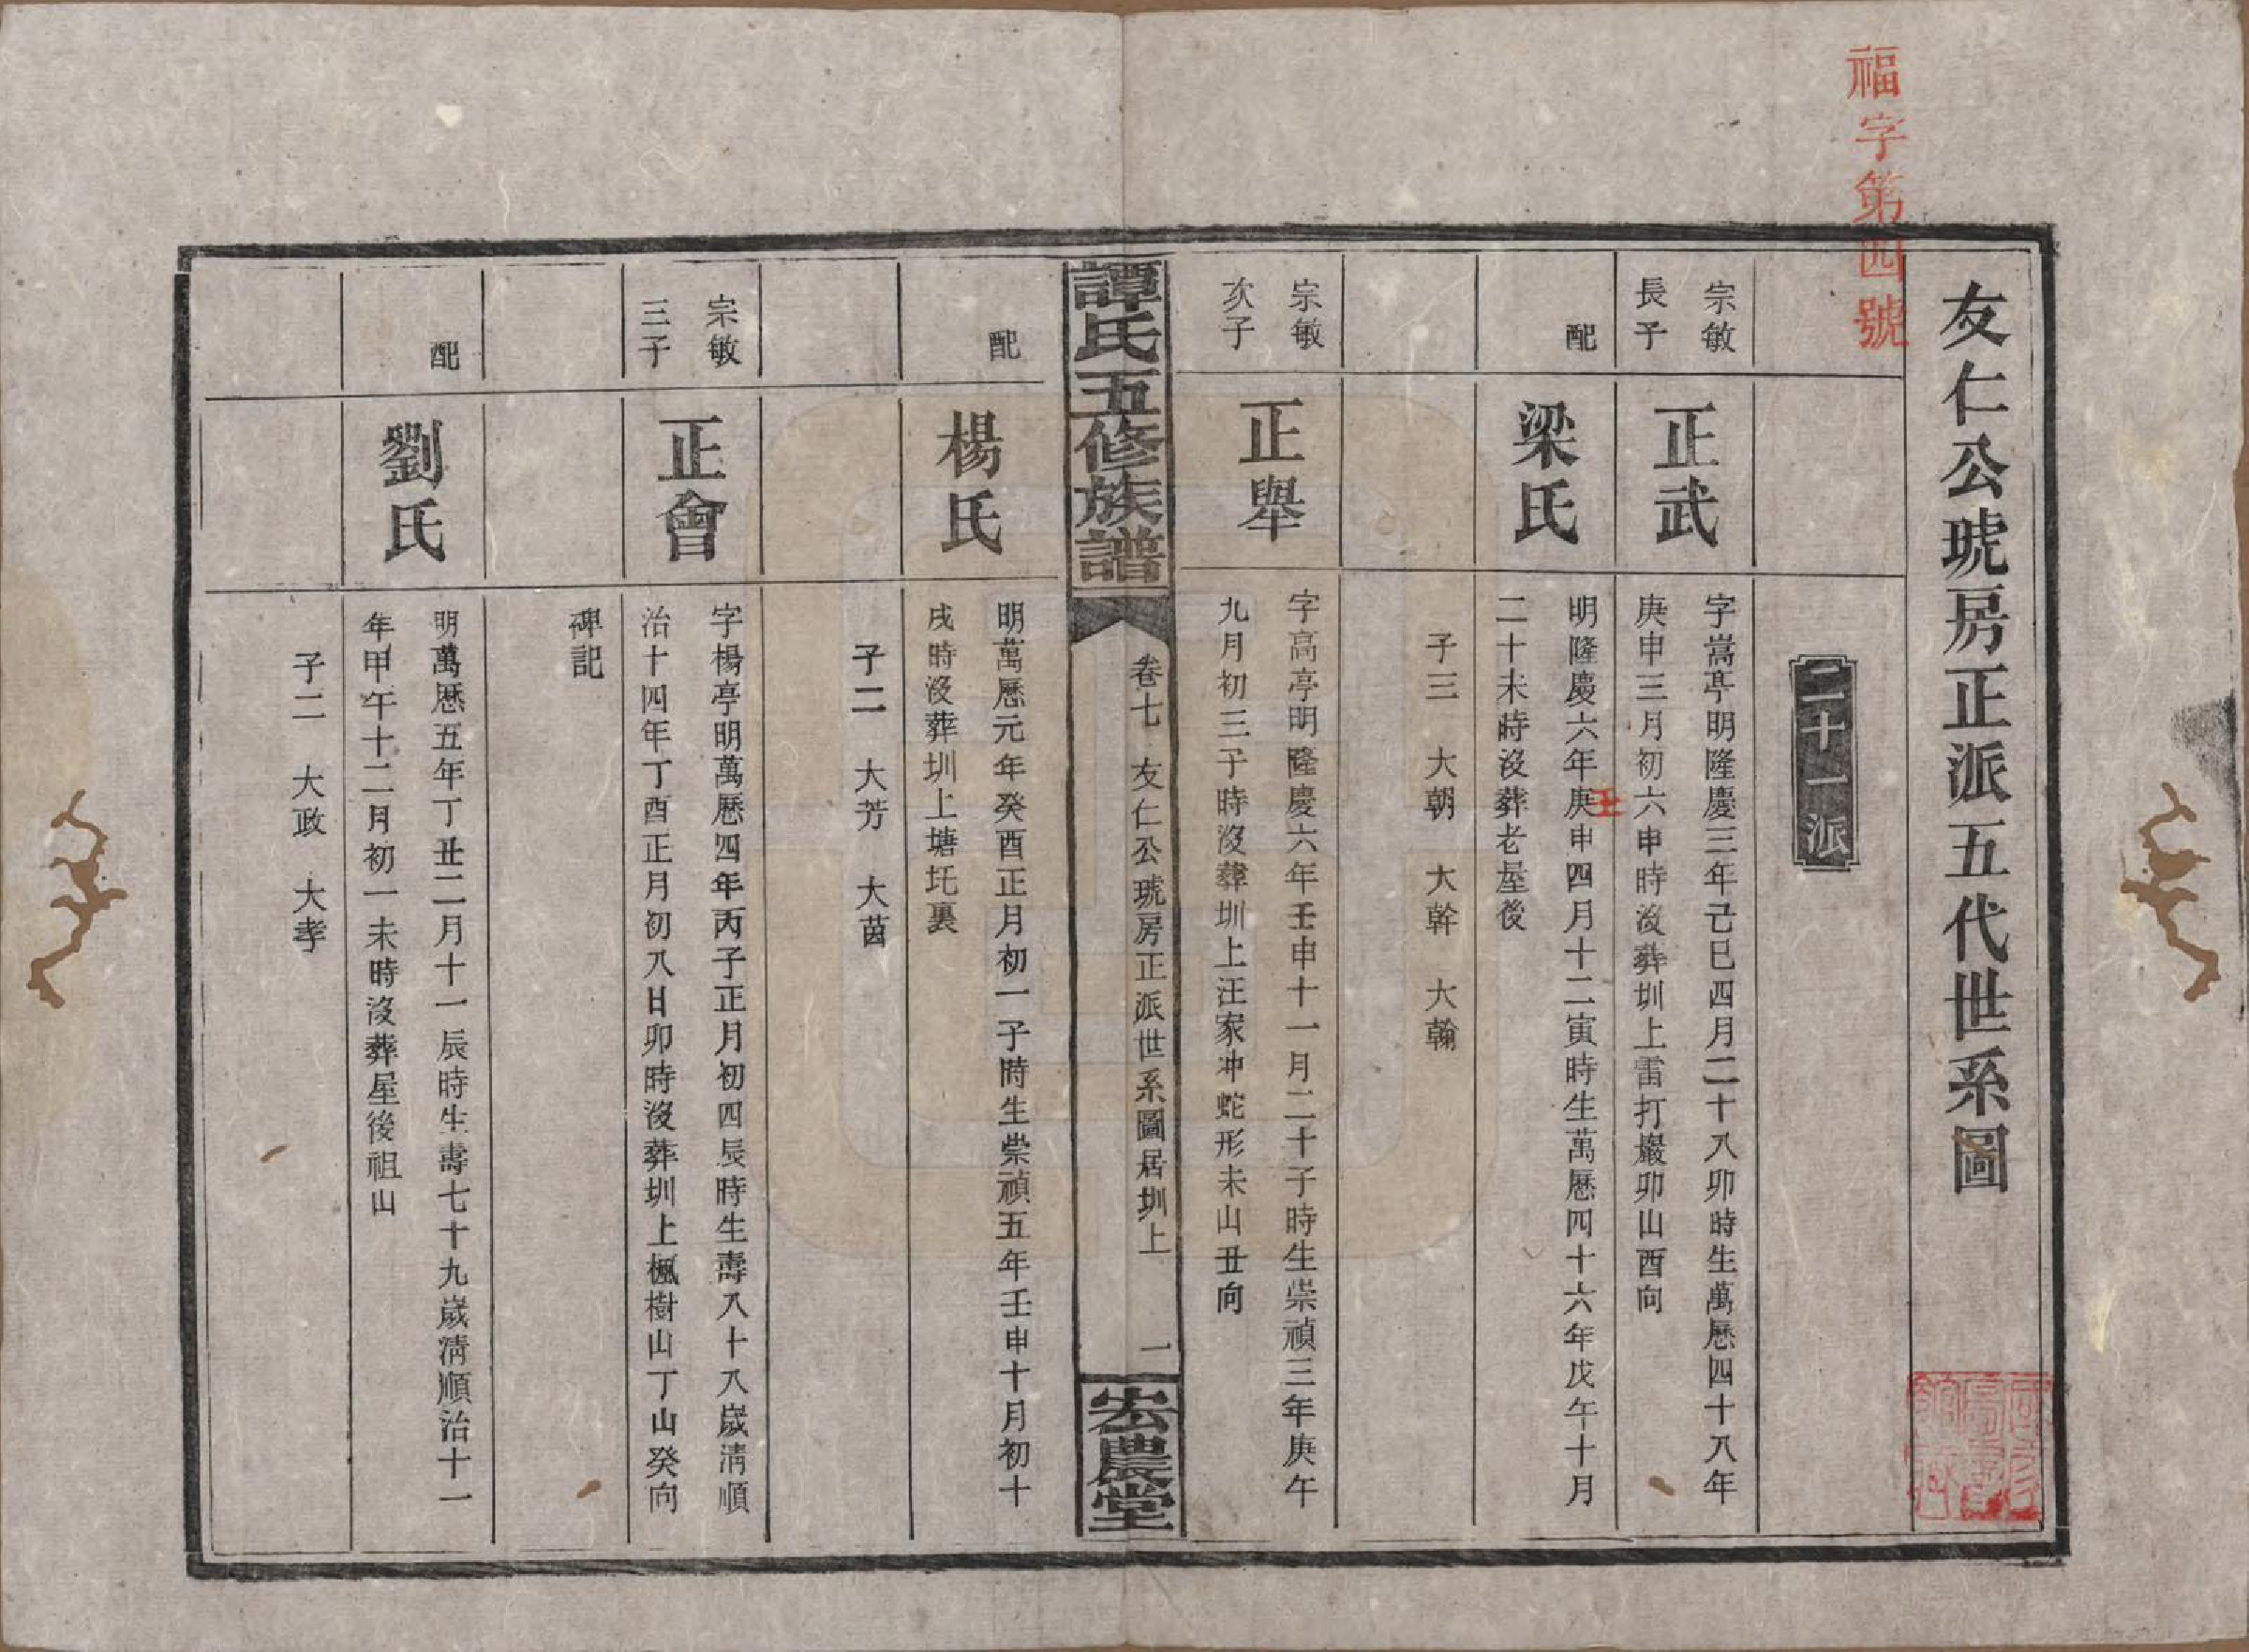 福字第四號
友仁公琥房正派五代世系圖
二十一派
宗敏
長子
正武
字嵩亭明隆慶三年己巳四月二十八卯時生萬歷四十八年
庚申三月初六申時沒葬圳上雷打巖卯山酉向
配
梁氏
明隆慶六年庚申四月十二寅時生萬歷四十六年戊午十月
壬
二十未時沒葬老屋後
子三 大朝 大幹 大翰
宗敏
次子
正舉
字高亭明隆慶六年壬申十一月二十子時生崇禎三年庚午
九月初三子時沒葬圳上汪家冲蛇形未山丑向
譚氏五修族譜
卷七 友仁公琥房正派世系圖居圳上
一
宏農堂
配
楊氏
明萬歷元年癸酉正月初一子時生崇禎五年壬申十月初十
戌時沒葬圳上塘圫裏
子二 大芳 大茵
宗敏
三子
正會
字楊亭明萬歷四年丙子正月初四辰時生壽八十八歲清順
治十四年丁酉正月初八日卯時沒葬圳上楓樹山丁山癸向
碑記
配
劉氏
明萬歷五年丁丑二月十一辰時生壽七十九歲清順治十一
年甲午十二月初一未時沒葬屋後祖山
子二 大政 大孝